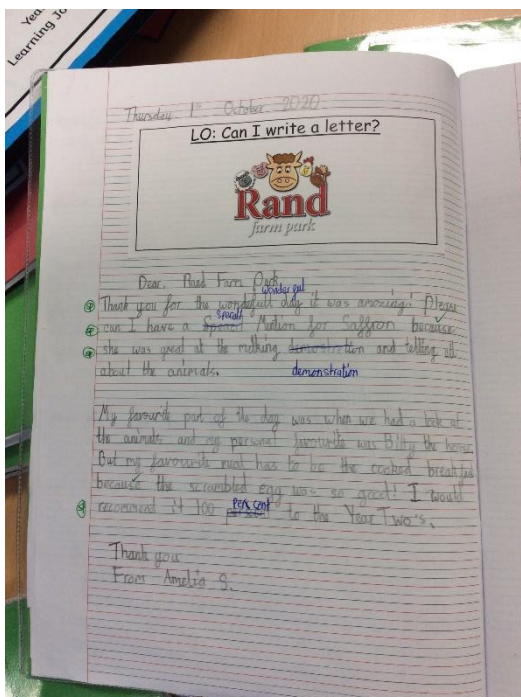 Year
Learning Jo
Thursday 1st October 2020
LO: Can I write a letter?
Rand
farm park
Dear, Rand Farm Park,
wonderful
Thank you for the wonderfull day it was amazing! Please
Speacll
can I have a Mention for Saffron because
she was great at the milking and telling all
demonstration
about the animals.
My favourite part of the day was when we had a look at
the animals and my personal favourite was Billy the horse.
But my favourite meal has to be the cooked breakfast
because the scrambled egg was so good! I would
per cent
recommend it 100 to the Year Two's.
Thank you
From Amelia S.